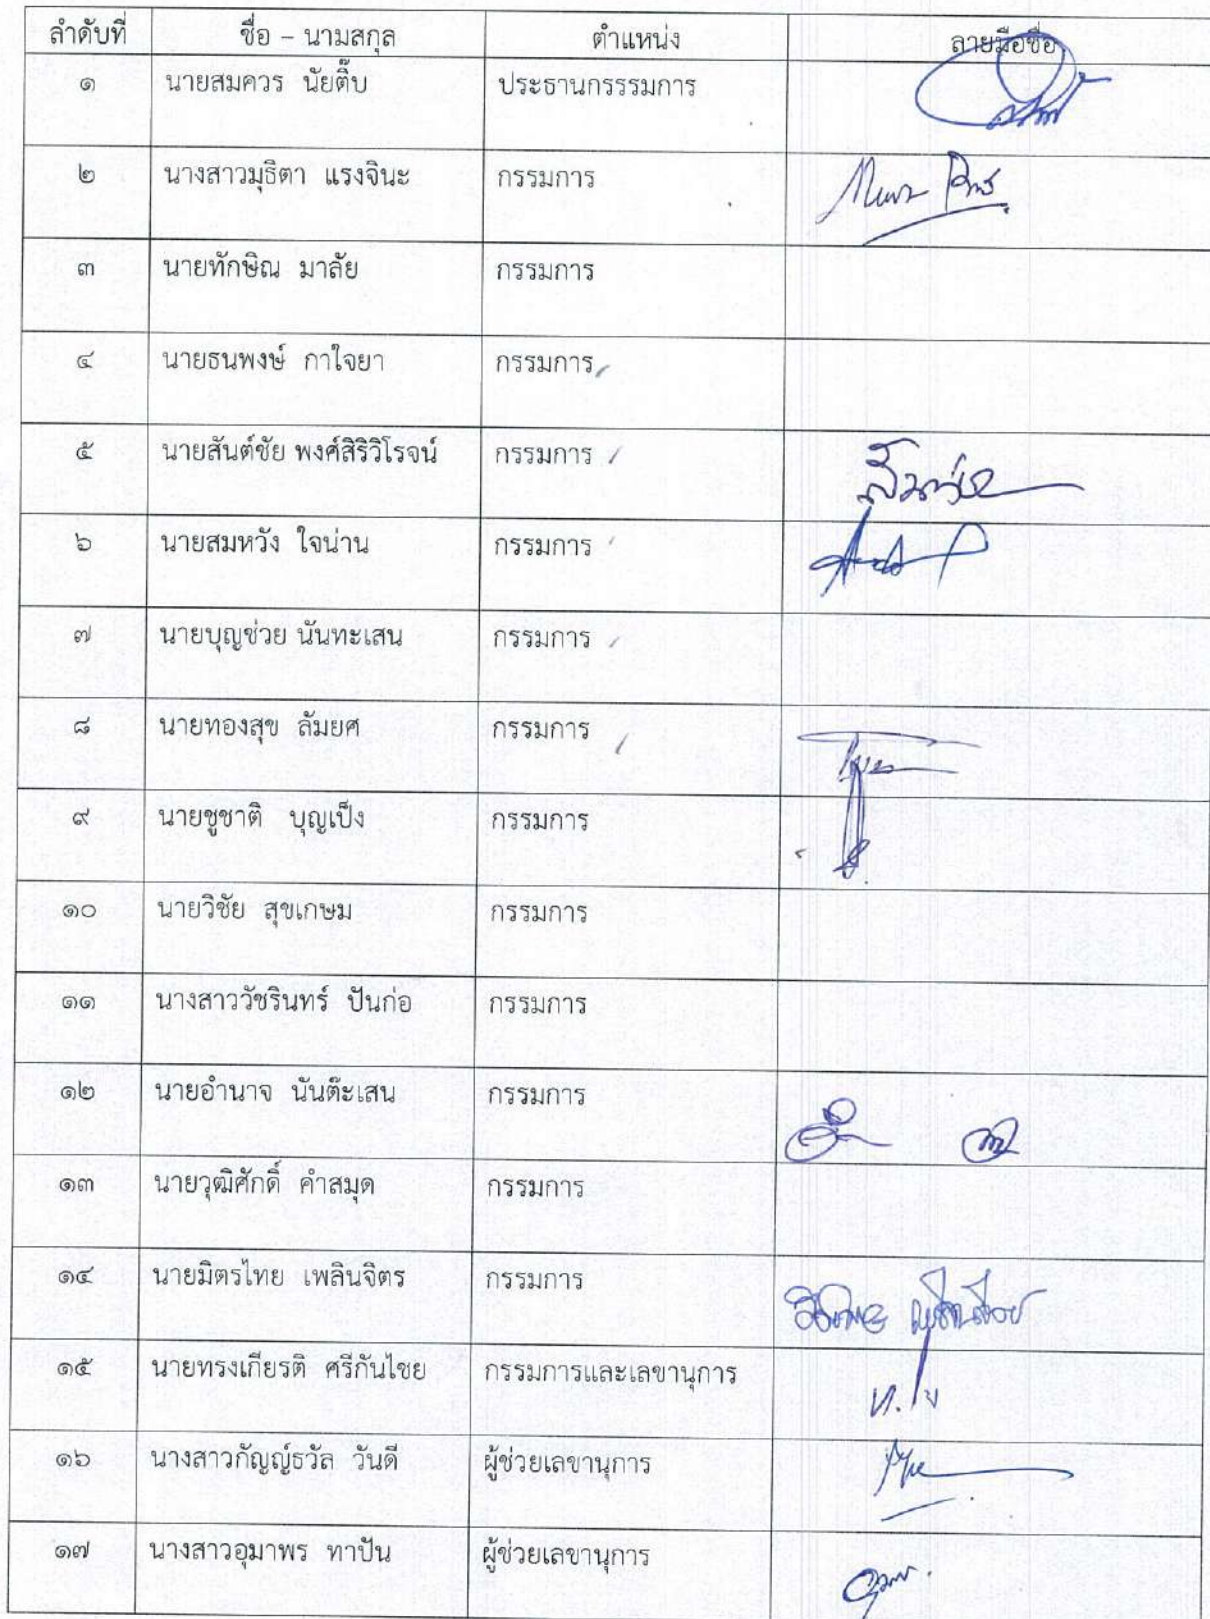 ลำดับที่ ชื่อ – นามสกุล ตำแหน่ง ลายมือชื่อ
๑ นายสมควร นัยติ๊บ ประธานกรรรมการ
๒ นางสาวมุธิตา แรงจินะ กรรมการ
๓ นายทักษิณ มาลัย กรรมการ
๔ นายธนพงษ์ กาใจยา กรรมการ
๕ นายสันต์ชัย พงศ์สิริวิโรจน์ กรรมการ
๖ นายสมหวัง ใจน่าน กรรมการ
๗ นายบุญช่วย นันทะเสน กรรมการ
๘ นายทองสุข ลัมยศ กรรมการ
๙ นายชูชาติ บุญเป็ง กรรมการ
๑๐ นายวิชัย สุขเกษม กรรมการ
๑๑ นางสาววัชรินทร์ ปันก่อ กรรมการ
๑๒ นายอำนาจ นันต๊ะเสน กรรมการ
๑๓ นายวุฒิศักดิ์ คำสมุด กรรมการ
๑๔ นายมิตรไทย เพลินจิตร กรรมการ
๑๕ นายทรงเกียรติ ศรีกันไชย กรรมการและเลขานุการ
๑๖ นางสาวกัญญ์ธวัล วันดี ผู้ช่วยเลขานุการ
๑๗ นางสาวอุมาพร ทาปัน ผู้ช่วยเลขานุการ